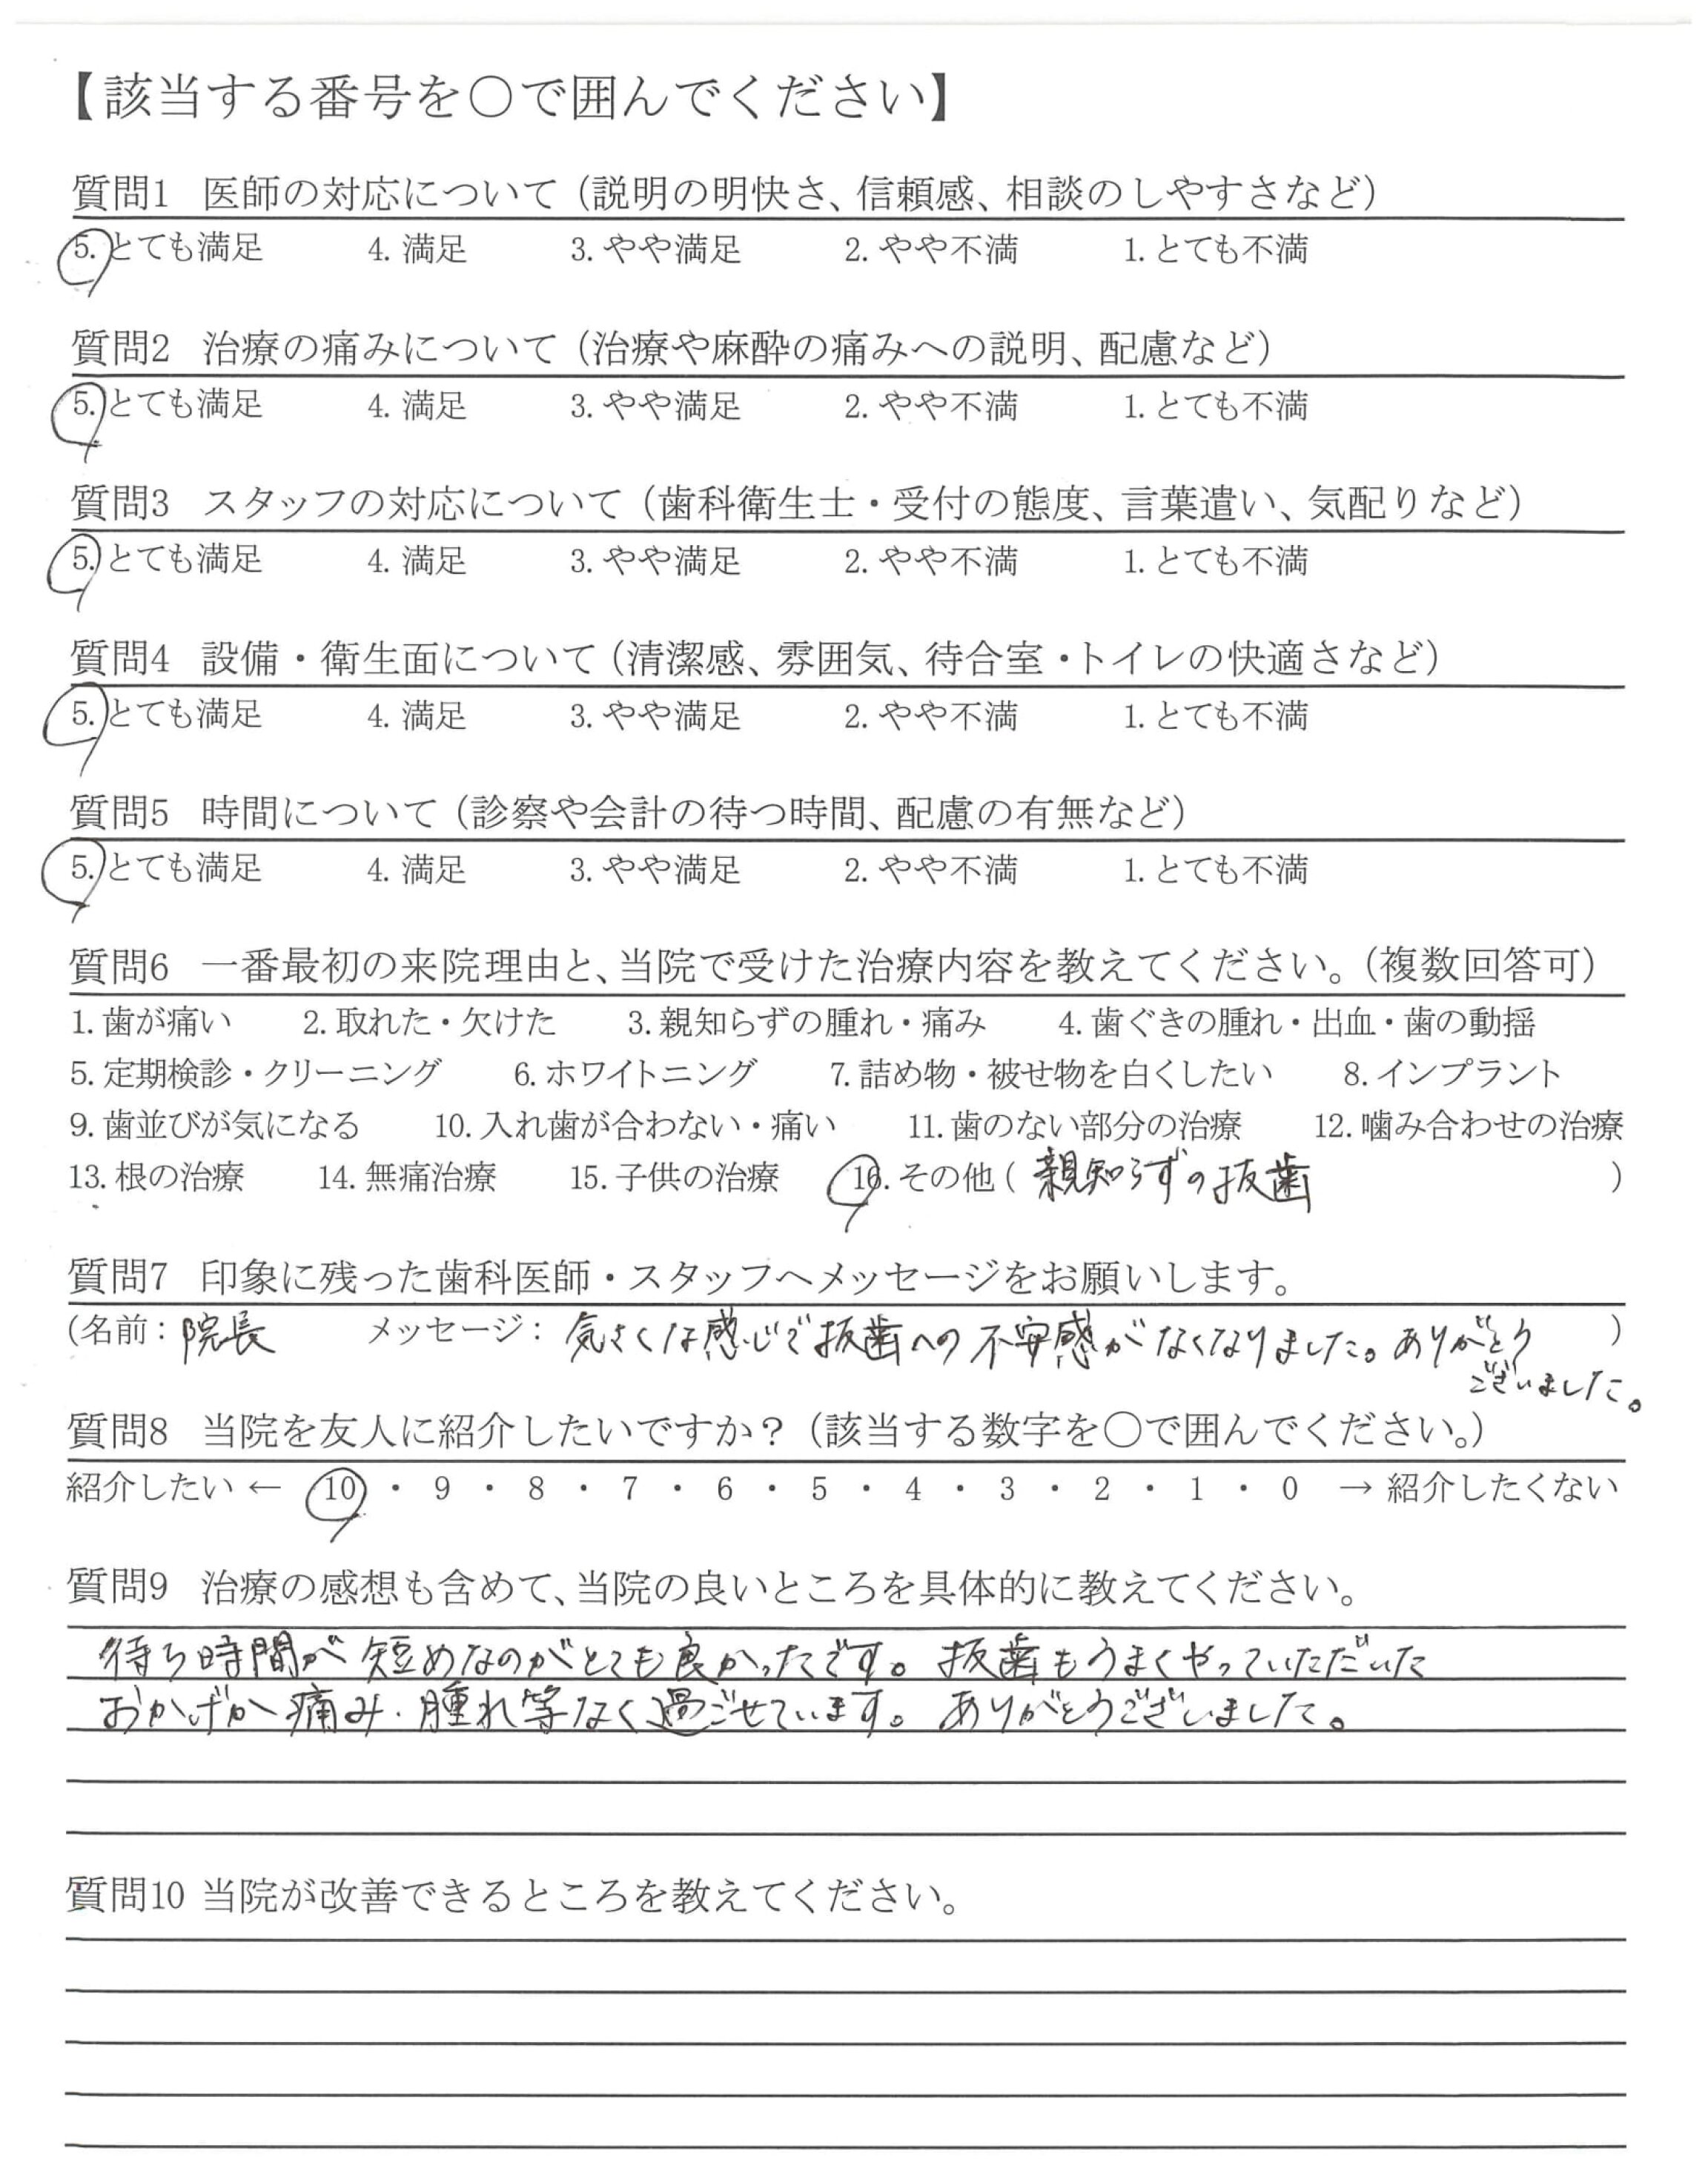 【該当する番号を〇で囲んでください】
質問1 医師の対応について（説明の明快さ、信頼感、相談のしやすさなど）
5. とても満足 4. 満足 3. やや満足 2. やや不満 1. とても不満
質問2 治療の痛みについて（治療や麻酔の痛みへの説明、配慮など）
5. とても満足 4. 満足 3. やや満足 2. やや不満 1. とても不満
質問3 スタッフの対応について（歯科衛生士・受付の態度、言葉遣い、気配りなど）
5. とても満足 4. 満足 3. やや満足 2. やや不満 1. とても不満
質問4 設備・衛生面について（清潔感、雰囲気、待合室・トイレの快適さなど）
5. とても満足 4. 満足 3. やや満足 2. やや不満 1. とても不満
質問5 時間について（診察や会計の待つ時間、配慮の有無など）
5. とても満足 4. 満足 3. やや満足 2. やや不満 1. とても不満
質問6 一番最初の来院理由と、当院で受けた治療内容を教えてください。（複数回答可）
1. 歯が痛い 2. 取れた・欠けた 3. 親知らずの腫れ・痛み 4. 歯ぐきの腫れ・出血・歯の動揺
5. 定期検診・クリーニング 6. ホワイトニング 7. 詰め物・被せ物を白くしたい 8. インプラント
9. 歯並びが気になる 10. 入れ歯が合わない・痛い 11. 歯のない部分の治療 12. 噛み合わせの治療
13. 根の治療 14. 無痛治療 15. 子供の治療 16. その他（ 親知らずの抜歯 ）
質問7 印象に残った歯科医師・スタッフへメッセージをお願いします。
（名前： 院長 メッセージ： 気さくな感じで抜歯への不安感がなくなりました。ありがとう ）
ございました。
質問8 当院を友人に紹介したいですか？（該当する数字を〇で囲んでください。）
紹介したい ← 10 ・ 9 ・ 8 ・ 7 ・ 6 ・ 5 ・ 4 ・ 3 ・ 2 ・ 1 ・ 0 → 紹介したくない
質問9 治療の感想も含めて、当院の良いところを具体的に教えてください。
待ち時間が短めなのがとても良かったです。抜歯もうまくやっていただいた
おかげか痛み・腫れ等なく過ごせています。ありがとうございました。
質問10 当院が改善できるところを教えてください。